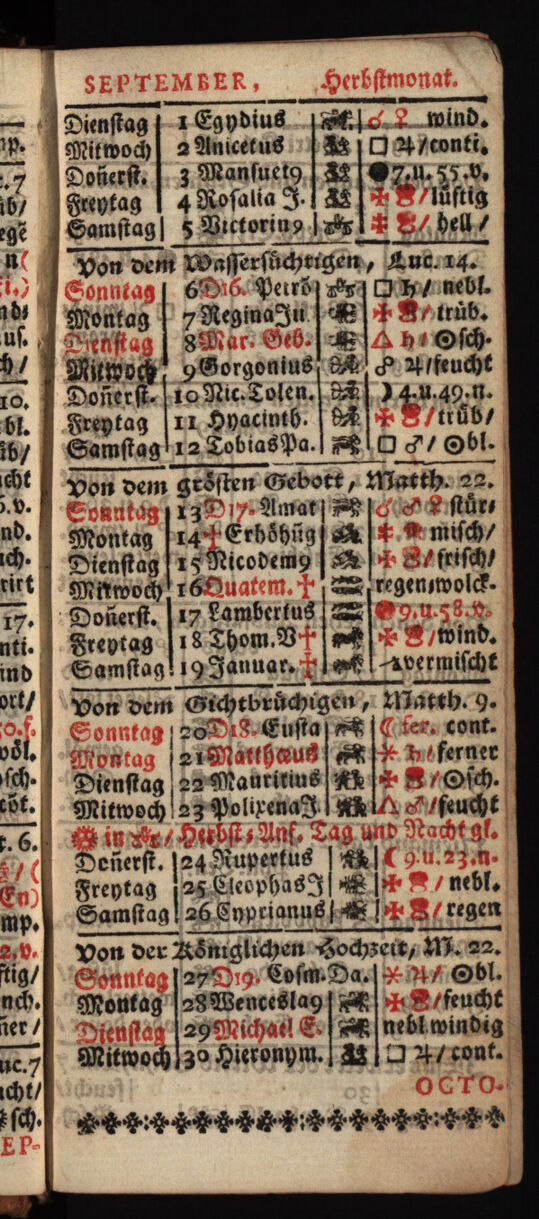 SEPTEMBER, Herbstmonat.
Dienstag 1 Egydius ☌ ♀ wind.
Mitwoch 2 Anicetus □ ♃/conti.
Doñerst. 3 Mansuet9 ●7.u.55.v.
Freytag 4 Rosalia J. /lüftig
Samstag 5 Victorin9 / hell /
Von dem Wassersüchtigen, Luc. 14.
Sonntag 6 D16. Petrõ □ ♄/ nebl.
Montag 7 Regina Ju / trüb.
Dienstag 8 Mar. Geb. △ ♄/ ☉sch.
Mitwoch 9 Gorgonius ☍ ♃/feucht
Doñerst. 10 Nic. Tolen. ☽4.u.49.n.
Freytag 11 Hyacinth. /trüb/
Samstag 12 Tobias Pa. □ ♂/ ☉bl.
Von dem grösten Gebott, Matth. 22.
Sonntag 13 D17. Amat ☌ ♂ ♀ stür⸗
Montag 14 ☩ Erhöhũg misch/
Dienstag 15 Nicodem9 /frisch/
Mitwoch 16 Quatem. ☩ regen⸗wolck.
Doñerst. 17 Lambertus 9.u.58.v.
Freytag 18 Thom. V ☩ /wind.
Samstag 19 Januar. ☩ vermischt
Von dem Gichtbrüchigen, Matth. 9.
Sonntag 20 D18. Eusta ☾ fer. cont.
Montag 21 Matthæus ⚹ ♄/ ferner
Dienstag 22 Mauritius /☉sch.
Mitwoch 23 Polixena J. △ ♂/feucht
in ♎/ Herbst⸗Anf. Tag und Nacht gl.
Doñerst. 24 Rupertus ☾ 9.u.23.n.
Freytag 25 Cleophas J / nebl.
Samstag 26 Cyprianus / regen
Von der Königlichen Hochzeit, M. 22.
Sonntag 27 D19. Cosm. Da. ⚹ ♃/ ☉bl.
Montag 28 Wencesla9 /feucht
Dienstag 29 Michael E. nebl windig
Mitwoch 30 Hieronym. □ ♃/ cont.
OCTO-